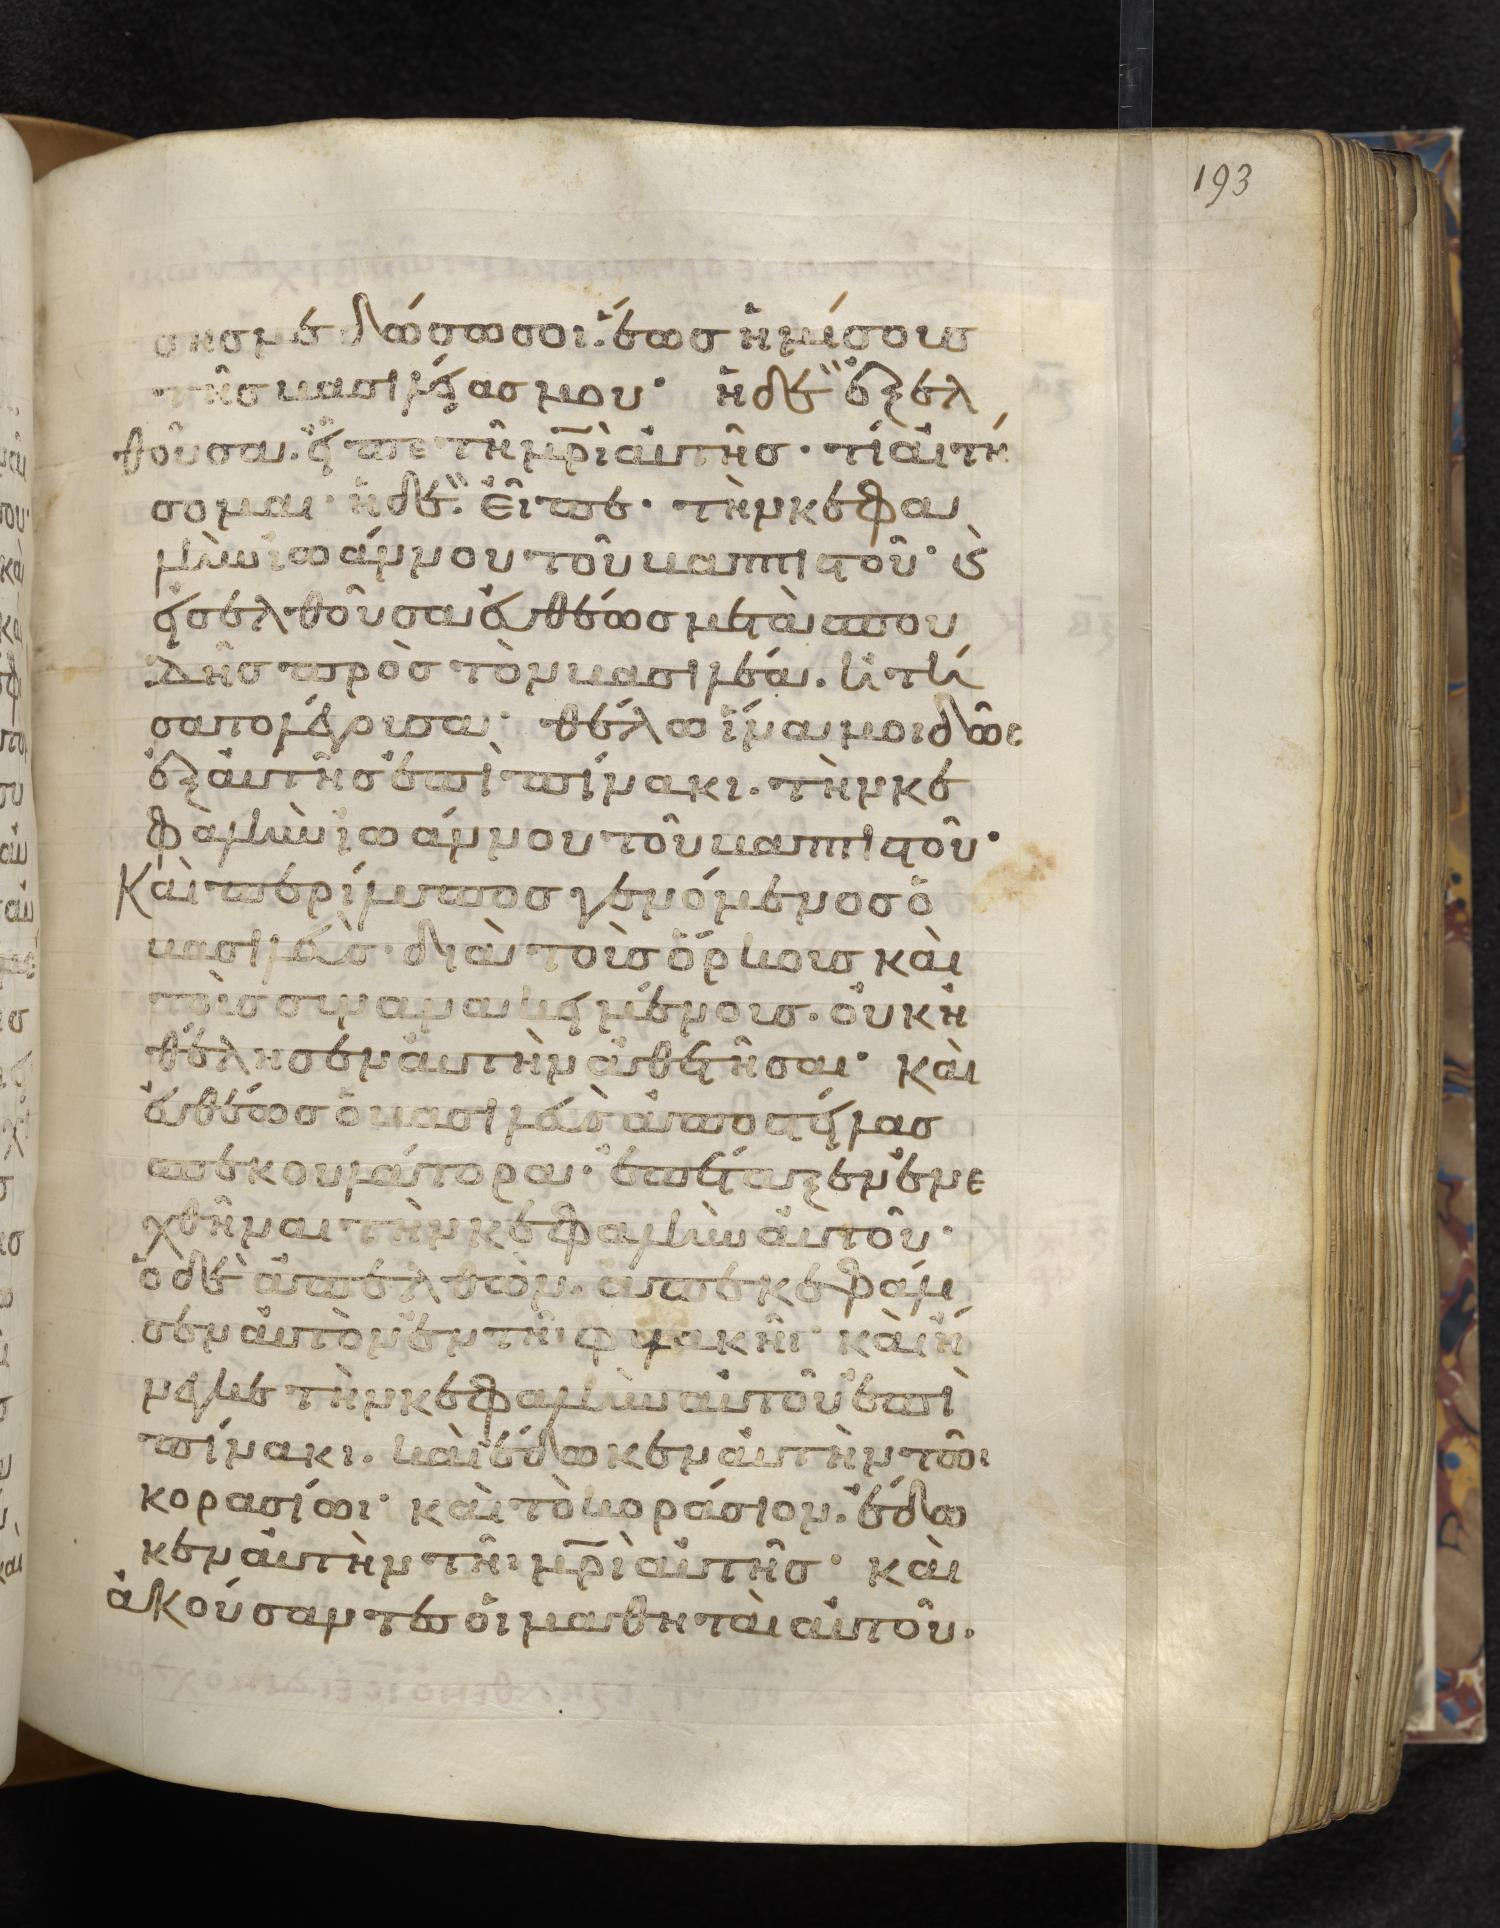 193
σησμε δώσω σοι· ἕως ἡμίσους
τῆς βασιλείας μου· ἡ δὲ ἐξελ
θοῦσα· εἶπε τῆ μρὶ αὐτῆς· τί αἰτή
σομαι· ἡ δὲ· εἶπε· τὴν κεφα
λὴν ἰωάννου τοῦ βαπτιστοῦ· καὶ
εἰσελθοῦσα εὐθέως μετὰ σπου
δῆς πρὸς τὸν βασιλέα· ἠτή
σατο λέγουσα· θέλω ἵνα μοι δῶς
ἐξαυτῆς ἐπὶ πίνακι· τὴν κε
φαλὴν ἰωάννου τοῦ βαπτιστοῦ·
Καὶ περίλυπος γενόμενος ὁ
βασιλεὺς· διὰ τοὺς ὅρκους καὶ
τοὺς συνανακειμένους· οὐκ ἠ
θέλησεν αὐτὴν ἀθετῆσαι· καὶ
εὐθέως ὁ βασιλεὺς ἀποστείλας
σπεκουλάτορα· ἐπέταξεν ἐνε
χθῆναι τὴν κεφαλὴν αὐτοῦ·
ὁ δὲ ἀπελθὼν· ἀπεκεφάλι
σεν αὐτὸν ἐν τῆι φυλακῆι· καὶ ἤ
νεγκε τὴν κεφαλὴν αὐτοῦ ἐπὶ
πίνακι· καὶ ἔδωκεν αὐτὴν τῶι
κορασίωι· καὶ τὸ κοράσιον· ἔδω
κεν αὐτὴν τῆι μρὶ αὐτῆς· καὶ
ἀκούσαντες οἱ μαθηταὶ αὐτοῦ·